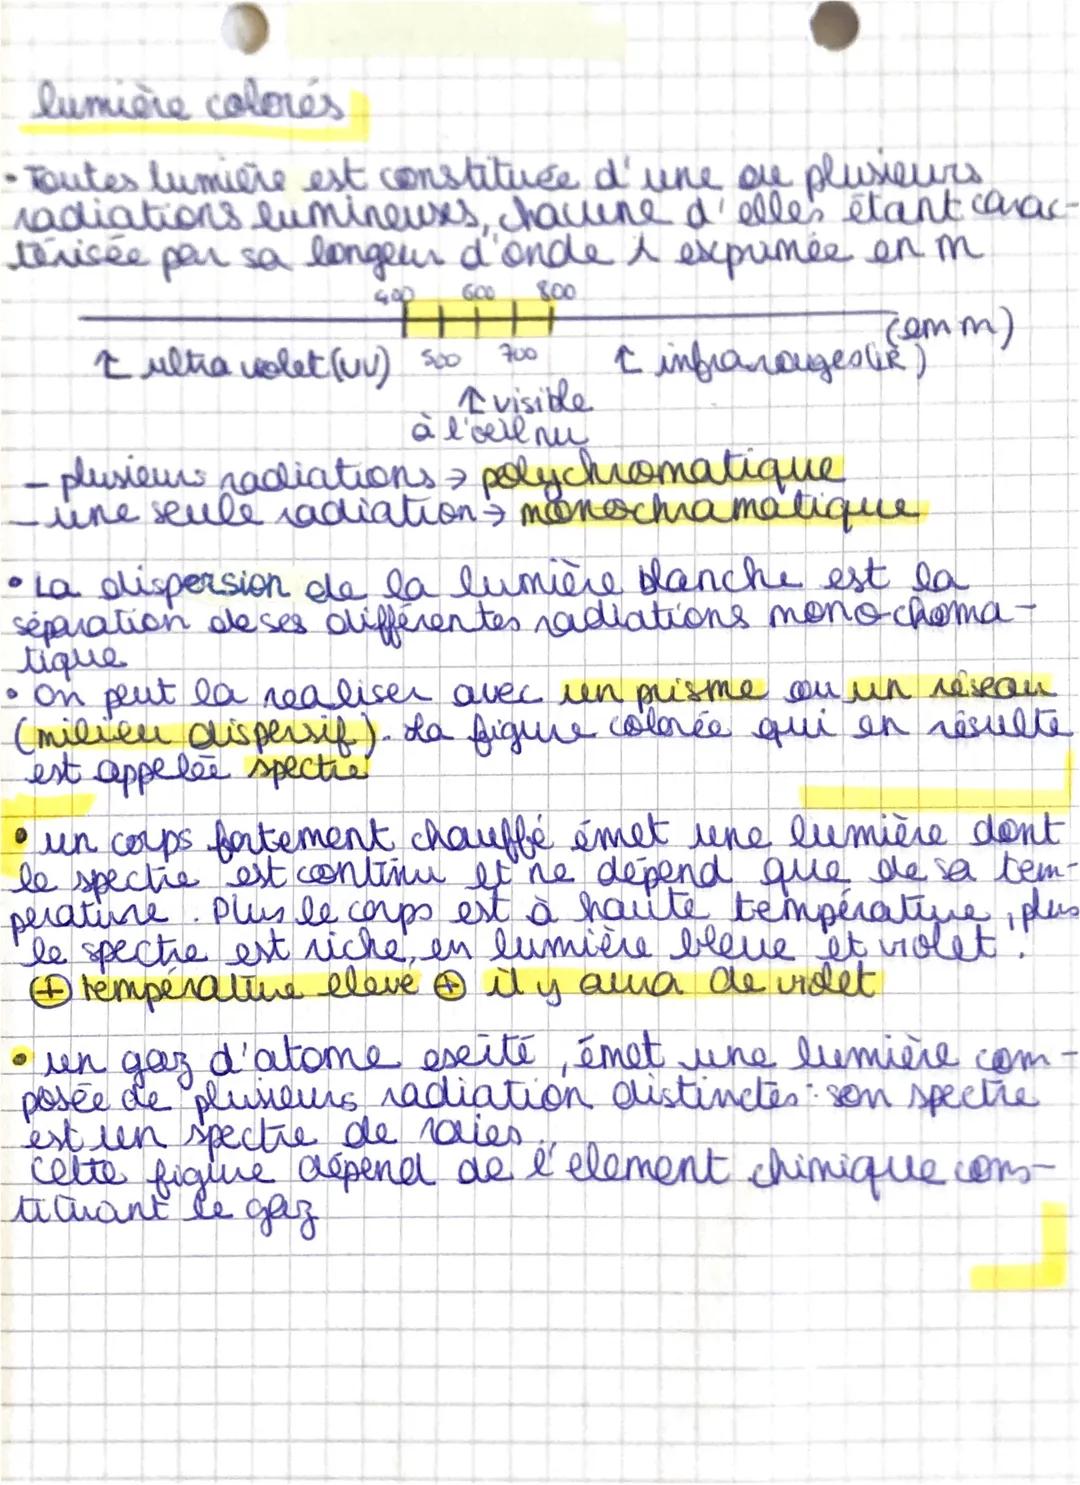 lumière colorés
• Toutes lumière est constituée d'une ou plusieurs
radiations lumineuses, chacune d'elles étant carac-
térisée par sa longeur d'onde λ exprimée en m
400 600 800
(en m)
↑ ultra violet (UV) 500 700 ↑ infrarouges (IR)
↑ visible
à l'œil nu
- plusieurs radiations → polychromatique
- une seule radiation → monochramatique
• La dispersion de la lumière blanche est la
séparation de ses différentes radiations mono-choma-
tique
• On peut la realiser avec un prisme ou un réseau
(milieu dispersif). La figure colorée qui en résulte
est appelée spectre
• un corps fortement chauffé émet une lumière dont
le spectre est continu et ne dépend que de sa tem-
perature. Plus le corps est à haute température, plus
le spectre est riche, en lumière bleue et violet.
⊕ température eleve ⊕ il y aura de violet
• un gaz d'atome exeité, émet une lumière com-
posée de plusieurs radiation distinctes : son spectre
est un spectre de raies.
Cette figure dépend de l'element chimique cons-
tituant le gaz